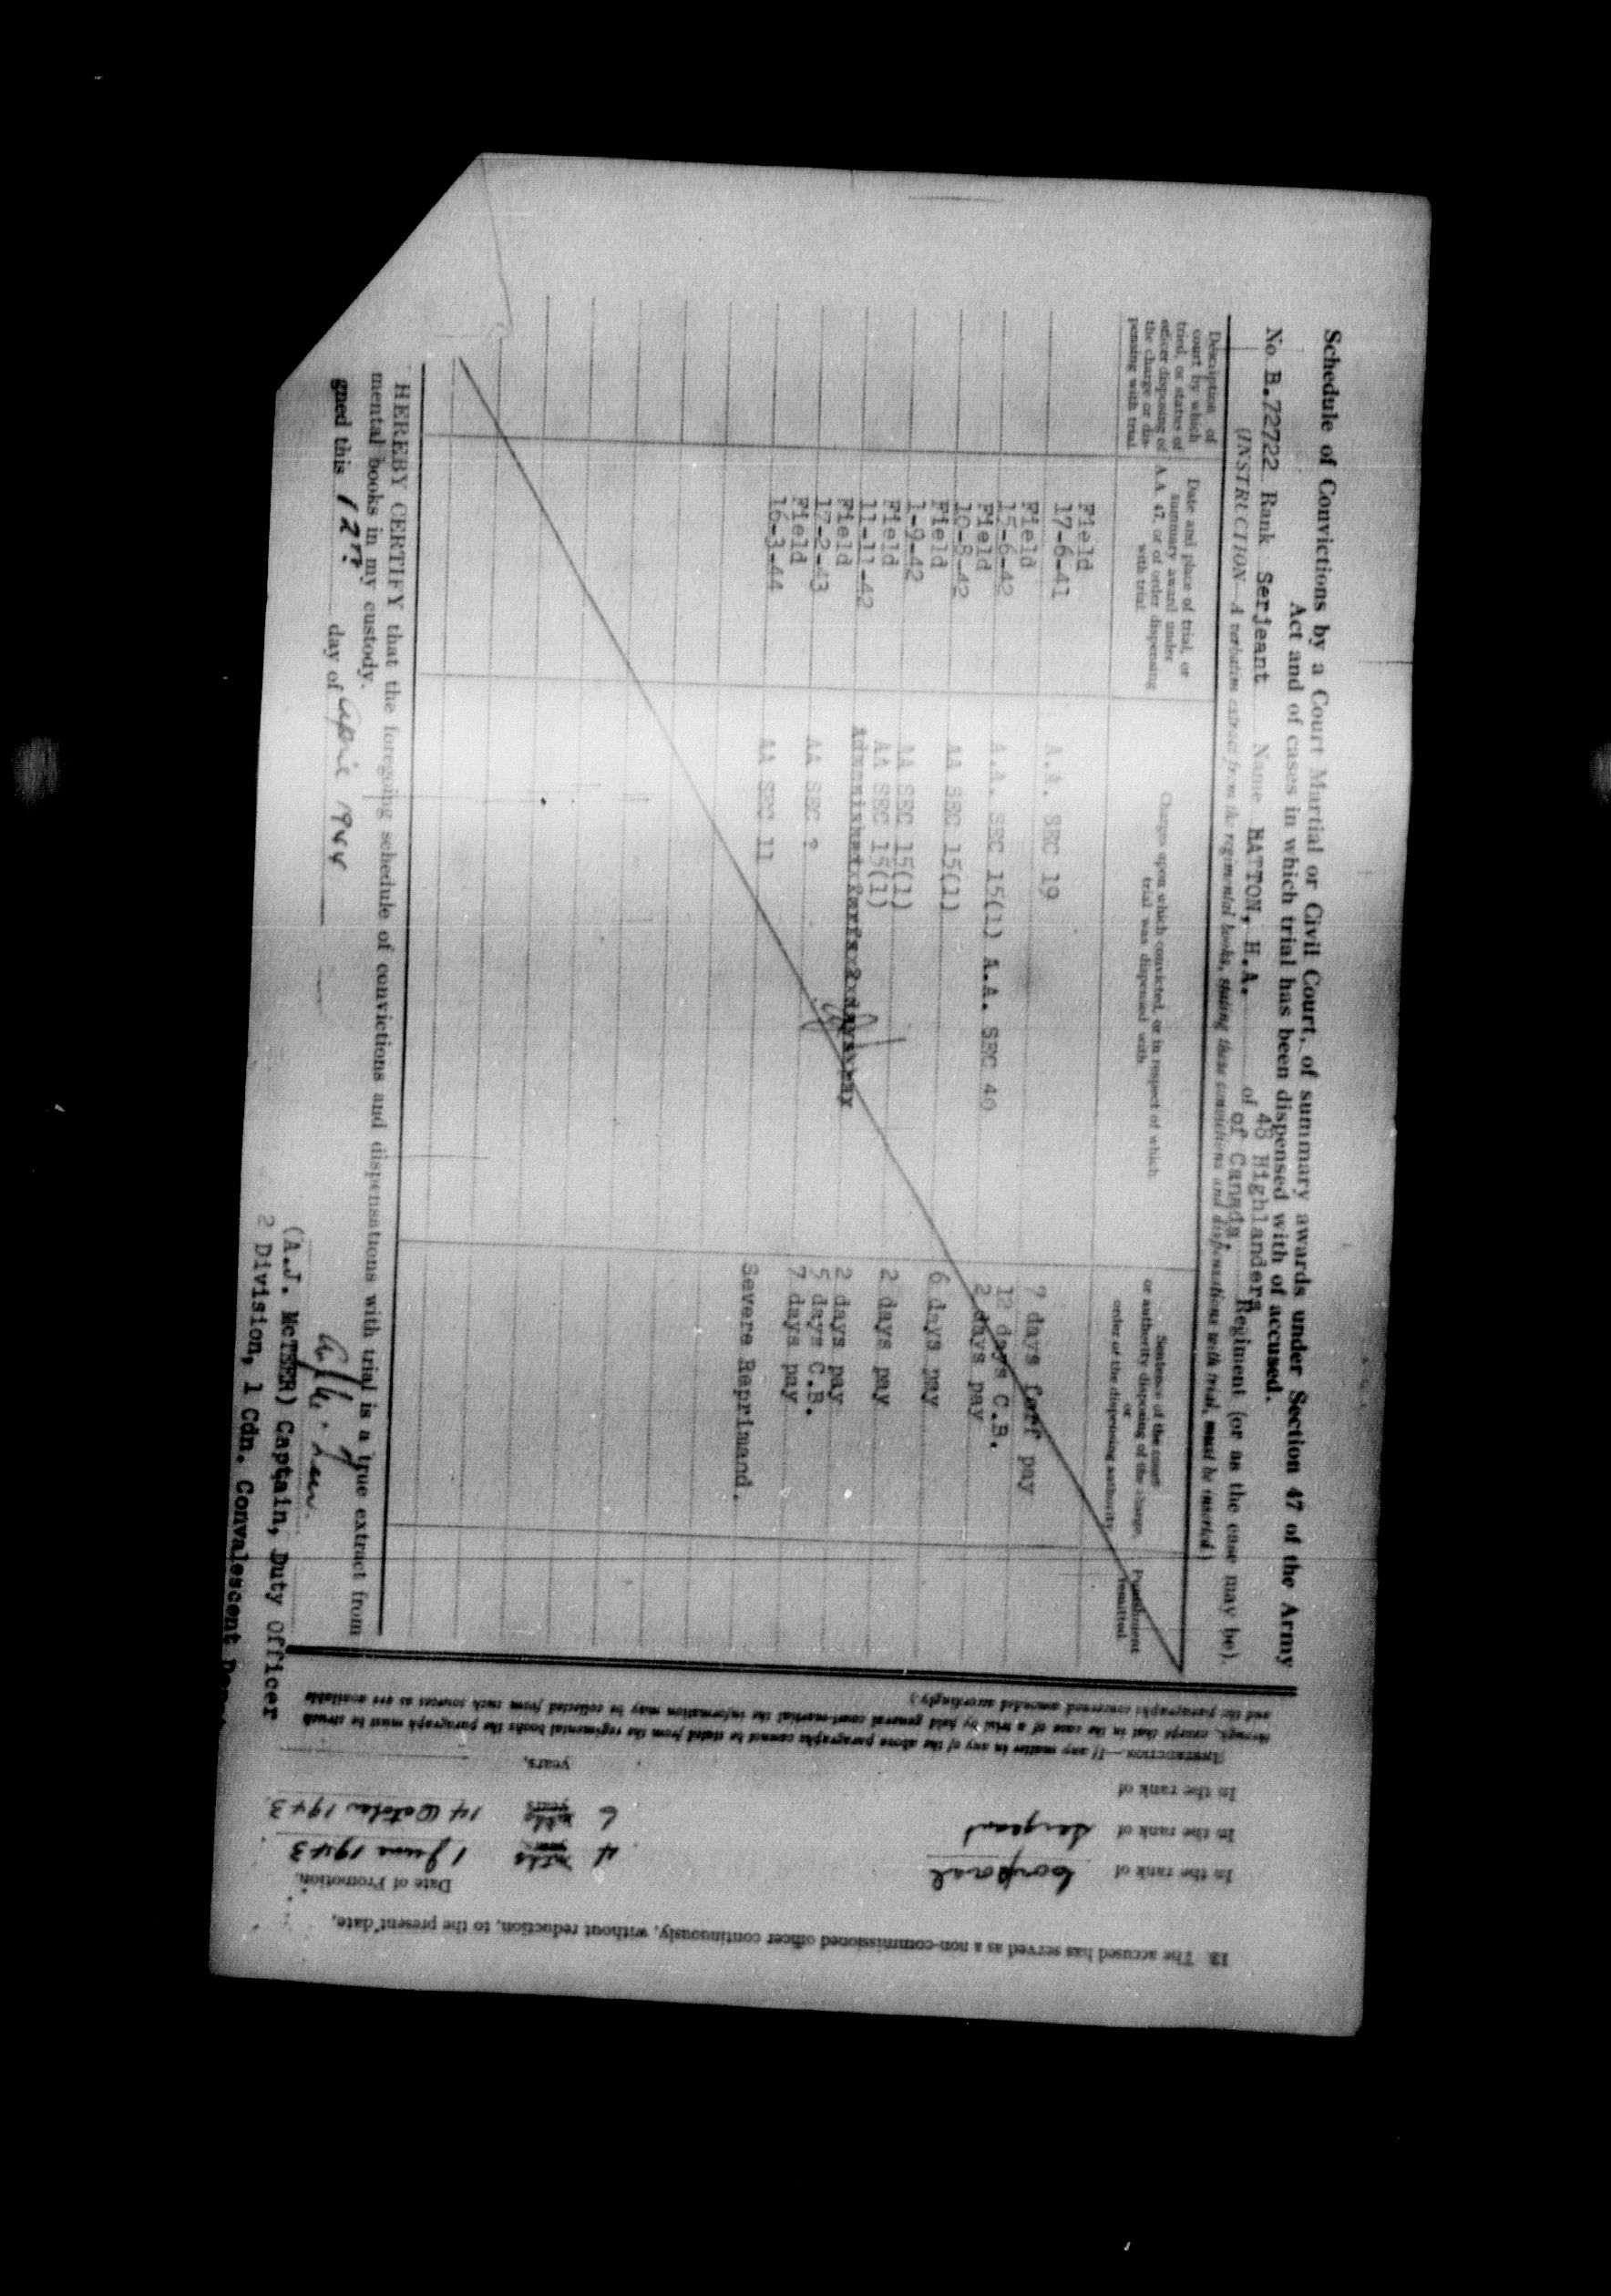 Schedule of Convictions by a Court Martial or Civil Court, of summary awards under Section 47 of the Army
Act and of cases in which trial has been dispensed with of accused.
No B.72722 Rank Serjeant Name HATTON, H.A. of 48 Highlanders of Canada Regiment (or as the case may be).
(INSTRUCTION—A verbatim extract from the regimental books, stating these convictions and dispensations with trial, must be inserted)
Description of
court by which
tried, or status of
officer disposing of
the charge or dis-
pensing with trial
Date and place of trial, or
summary award under
A.A. 47, or of order dispensing
with trial
Charges upon which convicted, or in respect of which
trial was dispensed with
Sentence of the court
or authority disposing of the charge,
or
order of the dispensing authority
Punishment
remitted
Field
17-6-41 A.A. SEC 19 7 days forf pay
Field
15-6-42 A.A. SEC 15(1) A.A. SEC 40 12 days C.B.
2 days pay
Field
10-8-42 AA SEC 15(1) 6 days pay
Field
1-9-42 AA SEC 15(1) 2 days pay
Field AA SEC 15(1)
11-11-42 Admonished forfs 2 days pay 2 days pay
Field 5 days C.B.
17-2-43 AA SEC ? 7 days pay
Field
16-3-44 AA SEC 11 Severe Reprimand.
HEREBY CERTIFY that the foregoing schedule of convictions and dispensations with trial is a true extract from
mental books in my custody.
gned this 12th day of April 1944
(A.J. McTEER) Captain, Duty Officer
2 Division, 1 Cdn. Convalescent
12. The accused has served as a non-commissioned officer continuously, without reduction, to the present date,
Date of Promotion.
In the rank of Corporal 4 mths years 1 June 1943
In the rank of Sergeant 6 mths years 14 October 1943
In the rank of years,
(INSTRUCTION.—If any matter in any of the above paragraphs cannot be stated from the regimental books the paragraph must be struck
through, except that in the case of a trial by field general court-martial the information may be collected from such sources as are available
and the paragraphs concerned amended accordingly.)